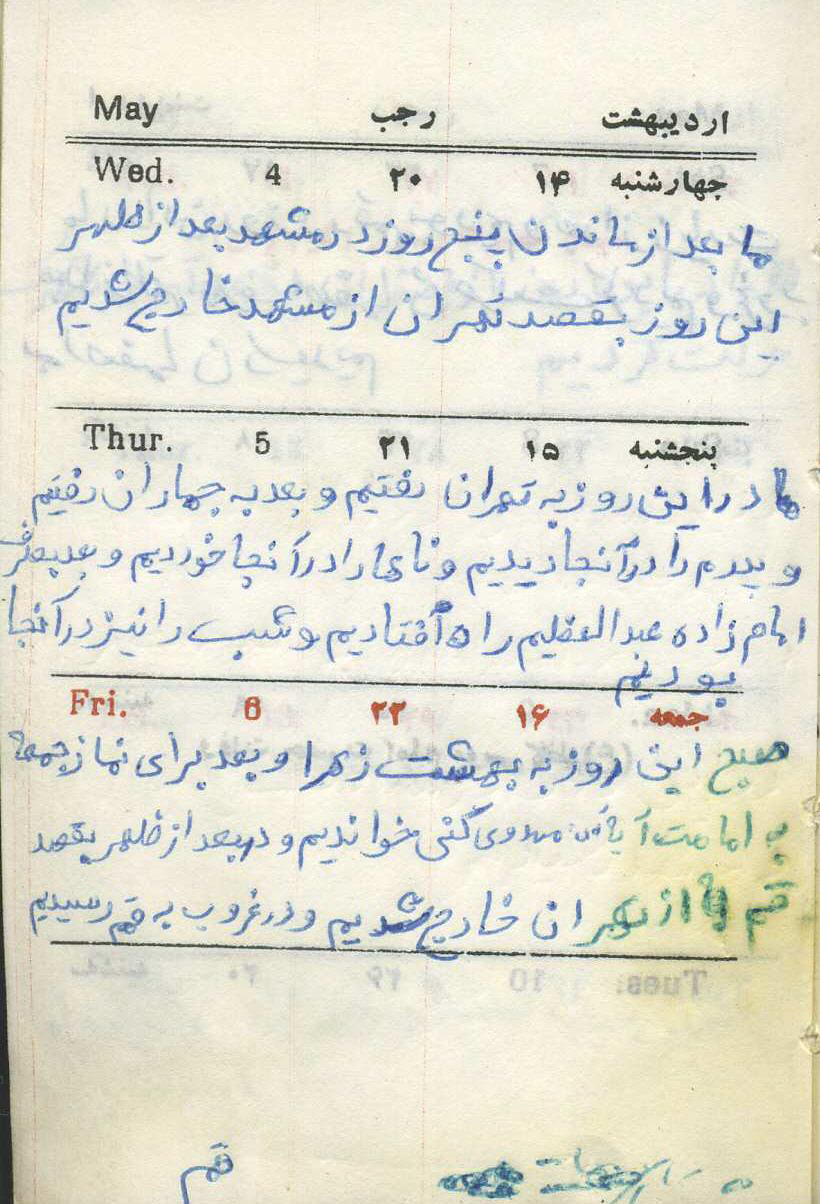 اردیبهشت رجب May
چهارشنبه ۱۴ ۲۰ 4 Wed.
ما بعد از ماندن پنج روز در مشهد بعد از ظهر
این روز بقصد تهران از مشهد خارج شدیم
پنجشنبه ۱۵ ۲۱ 5 Thur.
ما در این روز به تهران رفتیم و بعد به جماران رفتیم
و پدرم را در آنجا دیدیم و ناهار را در آنجا خوردیم و بعد بطرف
امام زاده عبدالعظیم راه افتادیم و شب را نیز در آنجا
بودیم
جمعه ۱۶ ۲۲ 6 Fri.
صبح این روز به بهشت زهرا و بعد برای نماز جمعه
به امامت مهدوی کنی خواندیم و در بعد از ظهر بقصد
قم از تهران خارج شدیم و در غروب به قم رسیدیم
قم